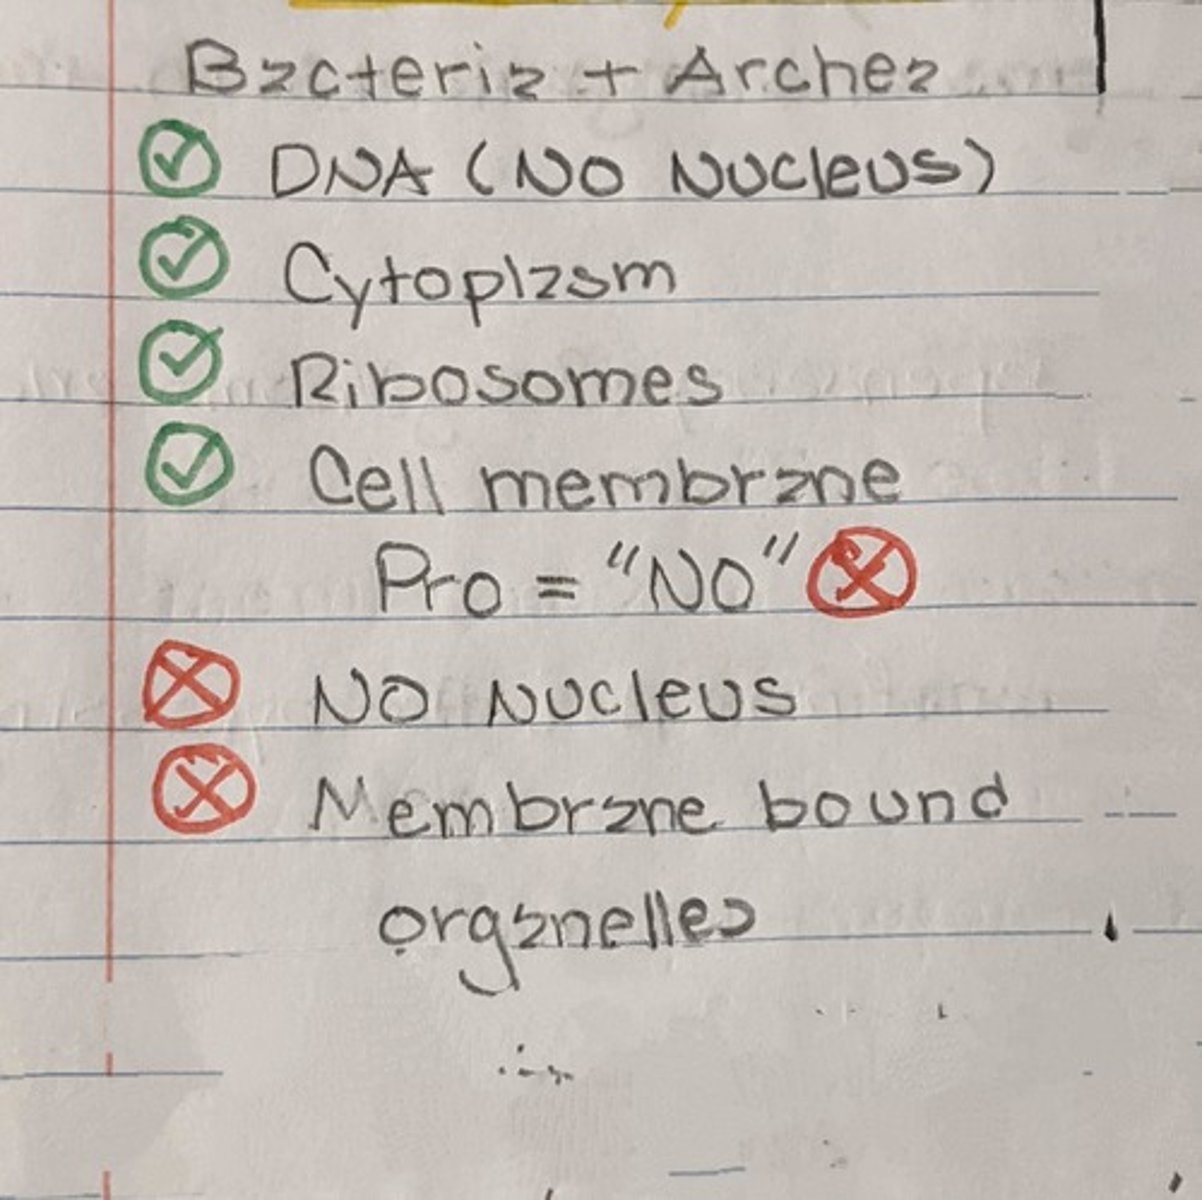 Bacteria + Archea
DNA (No Nucleus)
Cytoplasm
Ribosomes
Cell membrane
Pro = "No"
No Nucleus
Membrane bound
organelles